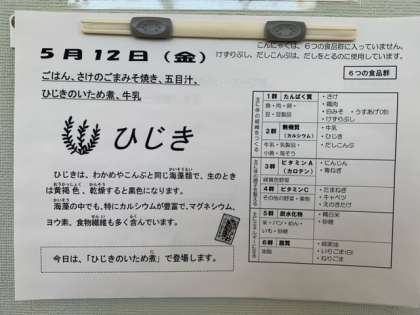 5月12日（金）
こんにゃくは、６つの食品群に入っていません。
けずりぶし、だしこんぶは、だしをとるのに使用しています。
ごはん、さけのごまみそ焼き、五目汁、
ひじきのいため煮、牛乳
ひじき
ひじきは、わかめやこんぶと同じ海藻類で、生のとき
は黄褐色、乾燥すると黒色になります。
海藻の中でも、特にカルシウムが豊富で、マグネシウム、
ヨウ素、食物繊維も多く含んでいます。
今日は、「ひじきのいため煮」で登場します。
６つの食品群
1群 たんぱく質
魚・肉・卵・
豆・豆製品
・さけ
・鶏肉
・白みそ ・うすあげ(冷)
・けずりぶし
2群 無機質
(カルシウム)
牛乳・乳製品・
小魚・海そう
・牛乳
・ひじき
・だしこんぶ
3群 ビタミンA
(カロテン)
緑黄色野菜
・にんじん
・青ねぎ
4群 ビタミンC
その他の野菜・果物
・たまねぎ
・キャベツ
・えのきたけ
5群 炭水化物
米・パン・めん・
いも・砂糖
・精白米
・砂糖
6群 脂質
油脂
・綿実油
・いりごま(白)
・ねりごま